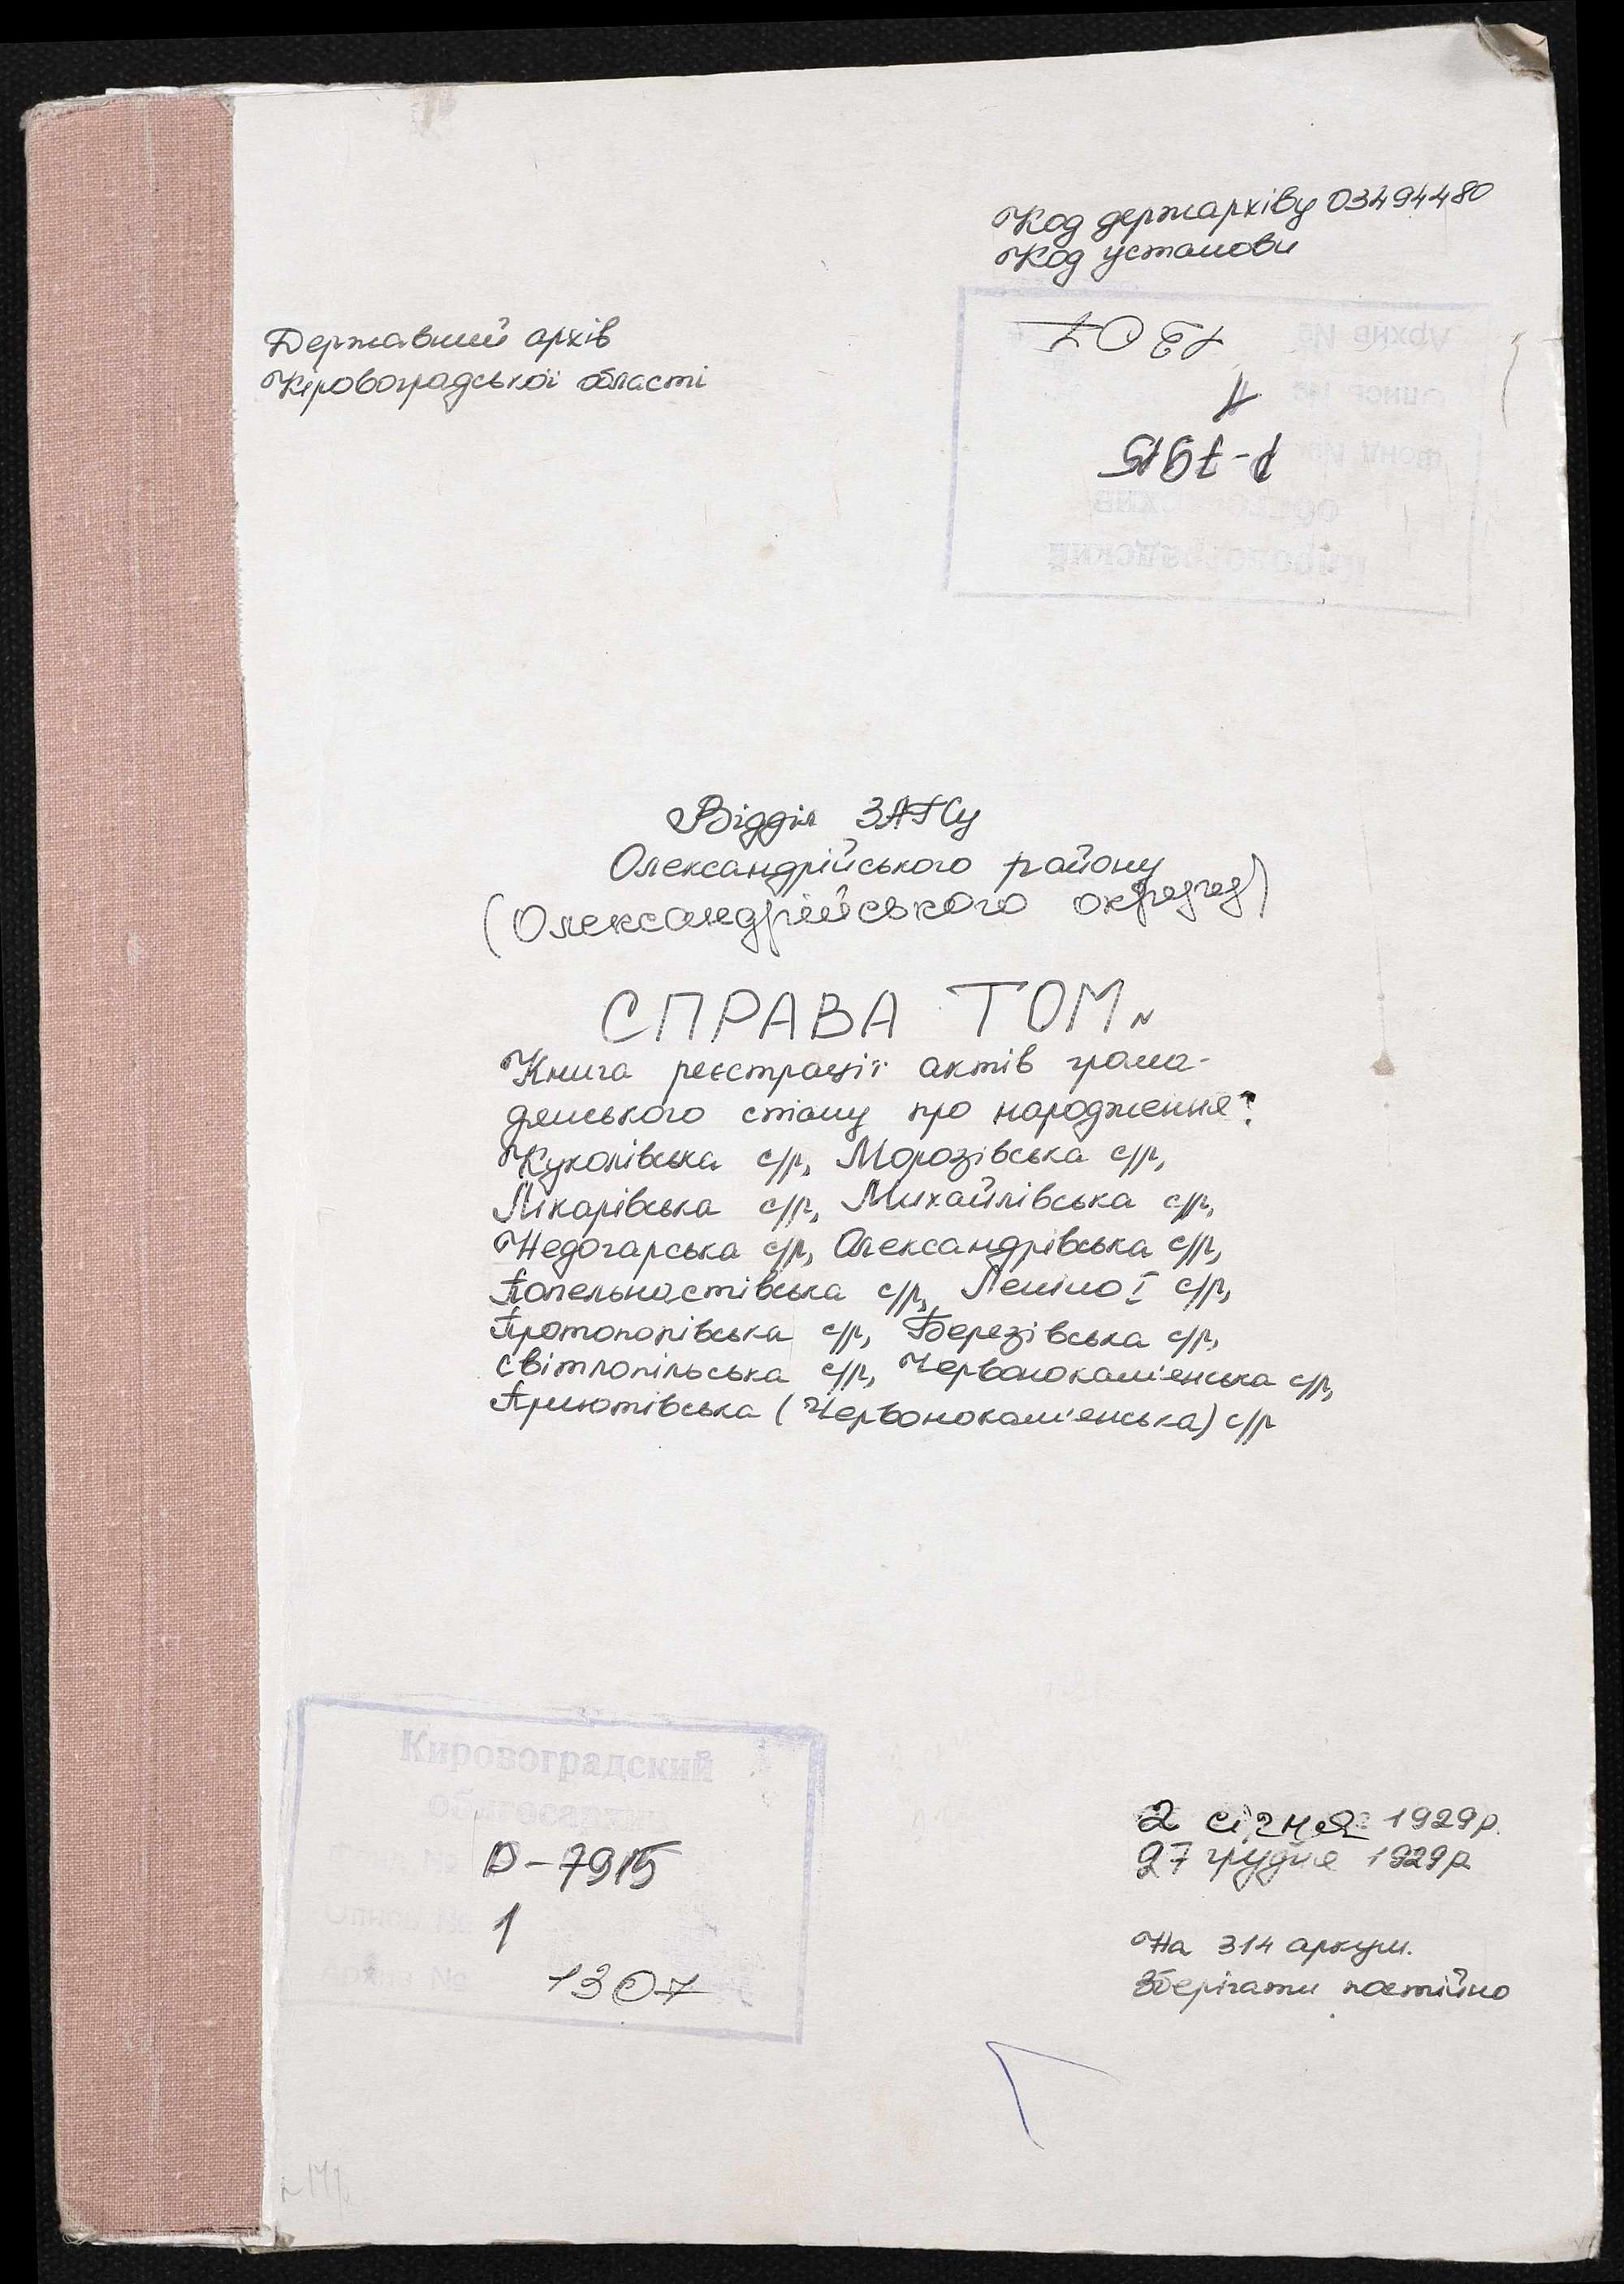 Код держархіву 03494480
Код установи
Державний архів
Кіровоградської області
1307
1
Р-7915
Відділ ЗАГСу
Олександрійського району
(Олександрійського округу)
СПРАВА ТОМ N
Книга реєстрації актів грома-
дянського стану про народження:
Куколівська с/р, Морозівська с/р,
Лікарівська с/р, Михайлівська с/р,
Недогарська с/р, Олександрівська с/р,
Попельностівська с/р, Леніно I с/р,
Протопопівська с/р, Березівська с/р,
Світлопільська с/р, Червонокам'янська с/р,
Приютівська (Червонокам'янська) с/р
Кировоградский
облгосархив
Р-7915
Опись № 1
Архив № 1307
2 січня 1929р.
27 грудня 1929р
На 314 аркуш.
Зберігати постійно